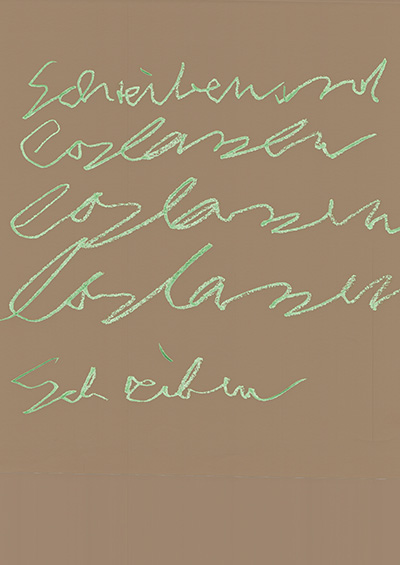 Schreiben und
Loslassen
Loslassen
Loslassen
Schreiben